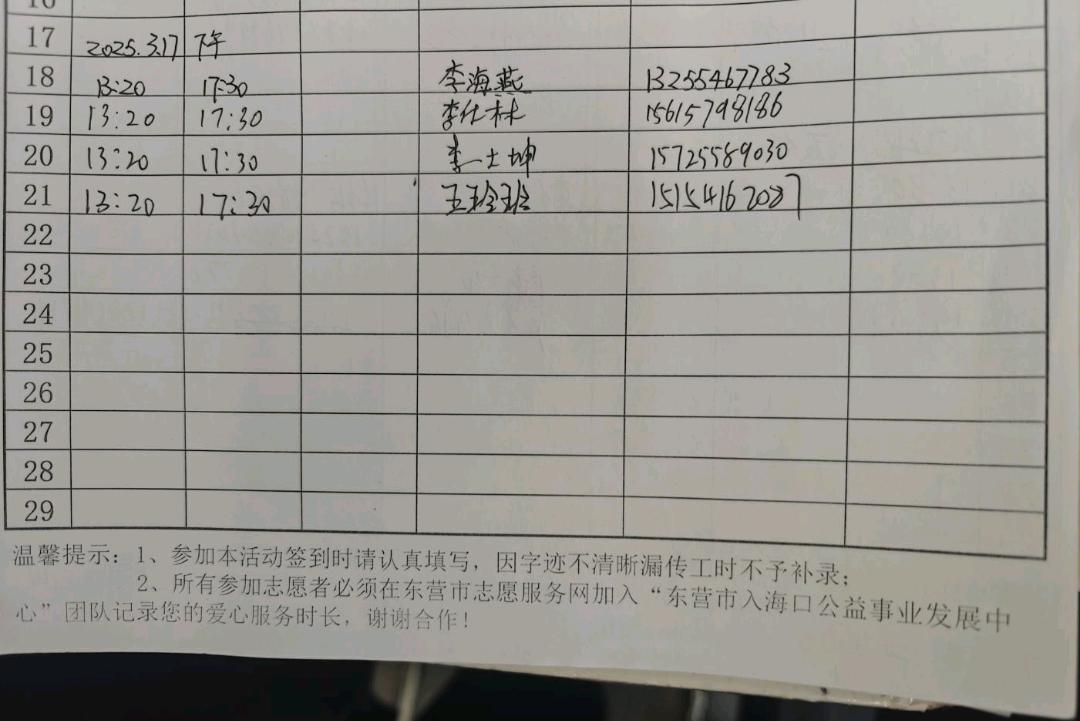 16
17 2025.3.17 下午
18 13:20 17:30 李海燕 13255467783
19 13:20 17:30 李仕林 15615798186
20 13:20 17:30 李士坤 15725589030
21 13:20 17:30 15154162087
22
23
24
25
26
27
28
29
温馨提示：1、参加本活动签到时请认真填写，因字迹不清晰漏传工时不予补录；
2、所有参加志愿者必须在东营市志愿服务网加入“东营市入海口公益事业发展中
心”团队记录您的爱心服务时长，谢谢合作！